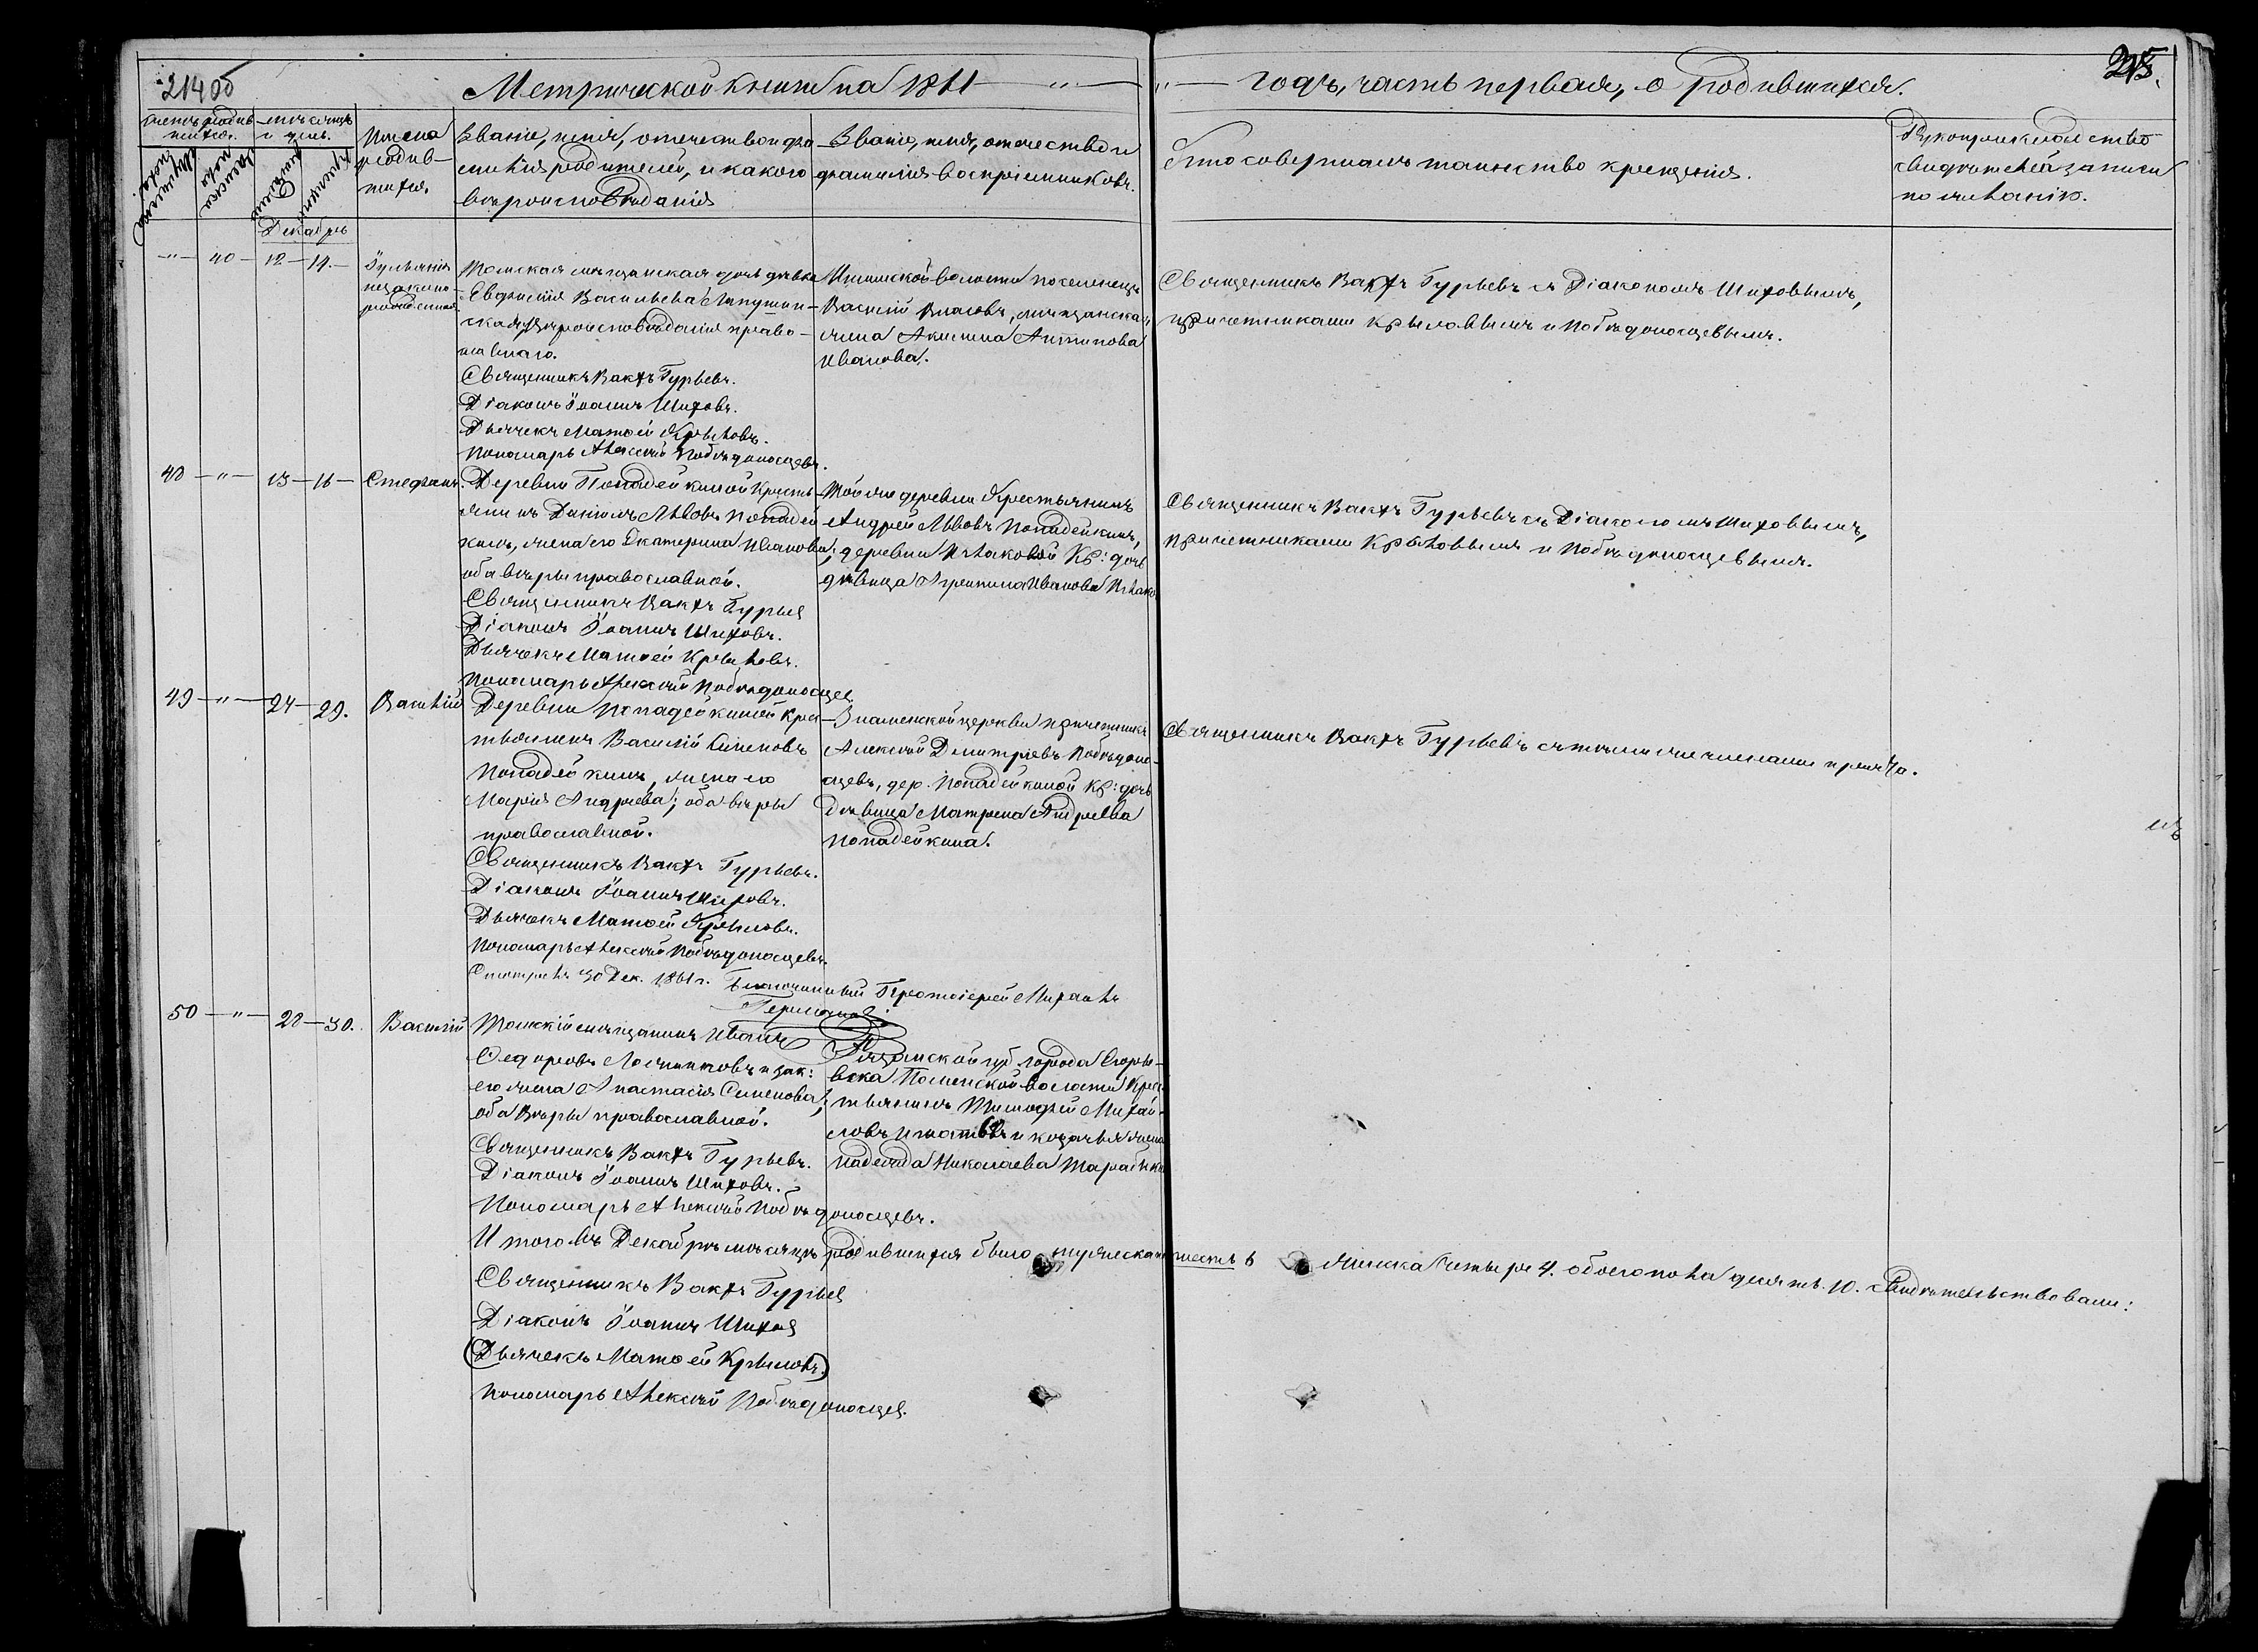 214 об
215.
Метрической книги на 1861 — " —
— " — годъ, часть первая, о родившихся.
Счетъ родив-
шихся.
Мужеска пола.
Женска пола
Мѣсяцъ
и день.
Рожденія
Крещенія
Имена
родив-
шихся.
Званіе, имя, отчество и фа-
милія родителей, и какого
вѣроисповѣданія
Званіе, имя, отчество и
фамилія воспріемниковъ.
Кто совершалъ таинство крещенія.
Рукоприкладство
свидѣтелей записи
по желанію.
Декабрь
— " — 40 — 12 — 14. —
Іульянія
незаконно-
рожденная
Томская мѣщанская дочь дѣвка
Евфимія Васильева
ская, вѣроисповѣданія право-
славнаго.
Священникъ Вакхъ Гурьевъ.
Діаконъ Іоаннъ Шиховъ.
Дьячекъ Матѳей Крыловъ.
Пономарь Алексѣй Побѣдоносцевъ.
волости поселенецъ
Василій Власовъ, мѣщанская
жена Акилина Антипова
Иванова.
Священникъ Вакхъ Гурьевъ съ Діакономъ Шиховымъ,
причетниками Крыловымъ и Побѣдоносцевымъ.
48 — " — 15 — 16 —
Стефанъ.
Деревни Попадейкиной кресть-
янинъ Даніилъ Львовъ Попадей
кинъ, жена его Екатерина Иванова;
оба вѣры православной.
Священникъ Вакхъ Гурьев
Діаконъ Іоаннъ Шиховъ.
Дьячекъ Матѳей Крыловъ.
Пономарь Алексѣй Побѣдоносцев
Той же деревни Крестьянинъ
Андрей Львовъ Попадейкинъ,
деревни Кр: дочь
дѣвица Агрипина Иванова
Священникъ Вакхъ Гурьевъ съ Діакономъ Шиховымъ,
причетниками Крыловымъ и Побѣдоносцевымъ.
49 — " — 24 — 29.
Василій
Деревни Попадейкиной Крес-
тьянинъ Василій Симеоновъ
Попадейкинъ, жена его
Марія Андреева; оба вѣры
православной.
Священникъ Вакхъ Гурьевъ.
Діаконъ Іоаннъ Шиховъ.
Дьячекъ Матѳей Крыловъ.
Пономарь Алексѣй Побѣдоносцевъ.
Знаменской церкви причетникъ
Алексѣй Димитріевъ Побѣдоно-
сцевъ, дер. Попадейкиной Кр: дочь
Дѣвица Матрена Андреева
Попадейкина.
Священникъ Вакхъ Гурьевъ съ тѣми же членами причта.
Смотрѣлъ 30 Дек. 1861 г. Благочинный Протоіерей Михаилъ
50 — " — 28 — 30.
Василій
Томскій мѣщанинъ Иванъ
Ѳедоровъ Ложниковъ и зак:
его жена Анастасія Симеонова;
оба вѣры православной.
Священникъ Вакхъ Гурьевъ.
Діаконъ Іоаннъ Шиховъ.
Пономарь Алексѣй Побѣдоносцевъ.
Рязанской губ. города Егорье-
вска волости Крес-
тьянинъ Тимофей Михай-
ловъ Игнатьевъ и козачья жена
Надежда Николаева
Итого въ Декабрѣ мѣсяцѣ родившихся было мужеска шесть 6 женска четыре 4. обоего пола десять. 10. Свидѣтельствовали:
Священникъ Вакхъ Гурьев
Діаконъ Іоаннъ Шихов
(Дьячекъ Матѳей Крыловъ.)
Пономарь Алексѣй Побѣдоносцев.